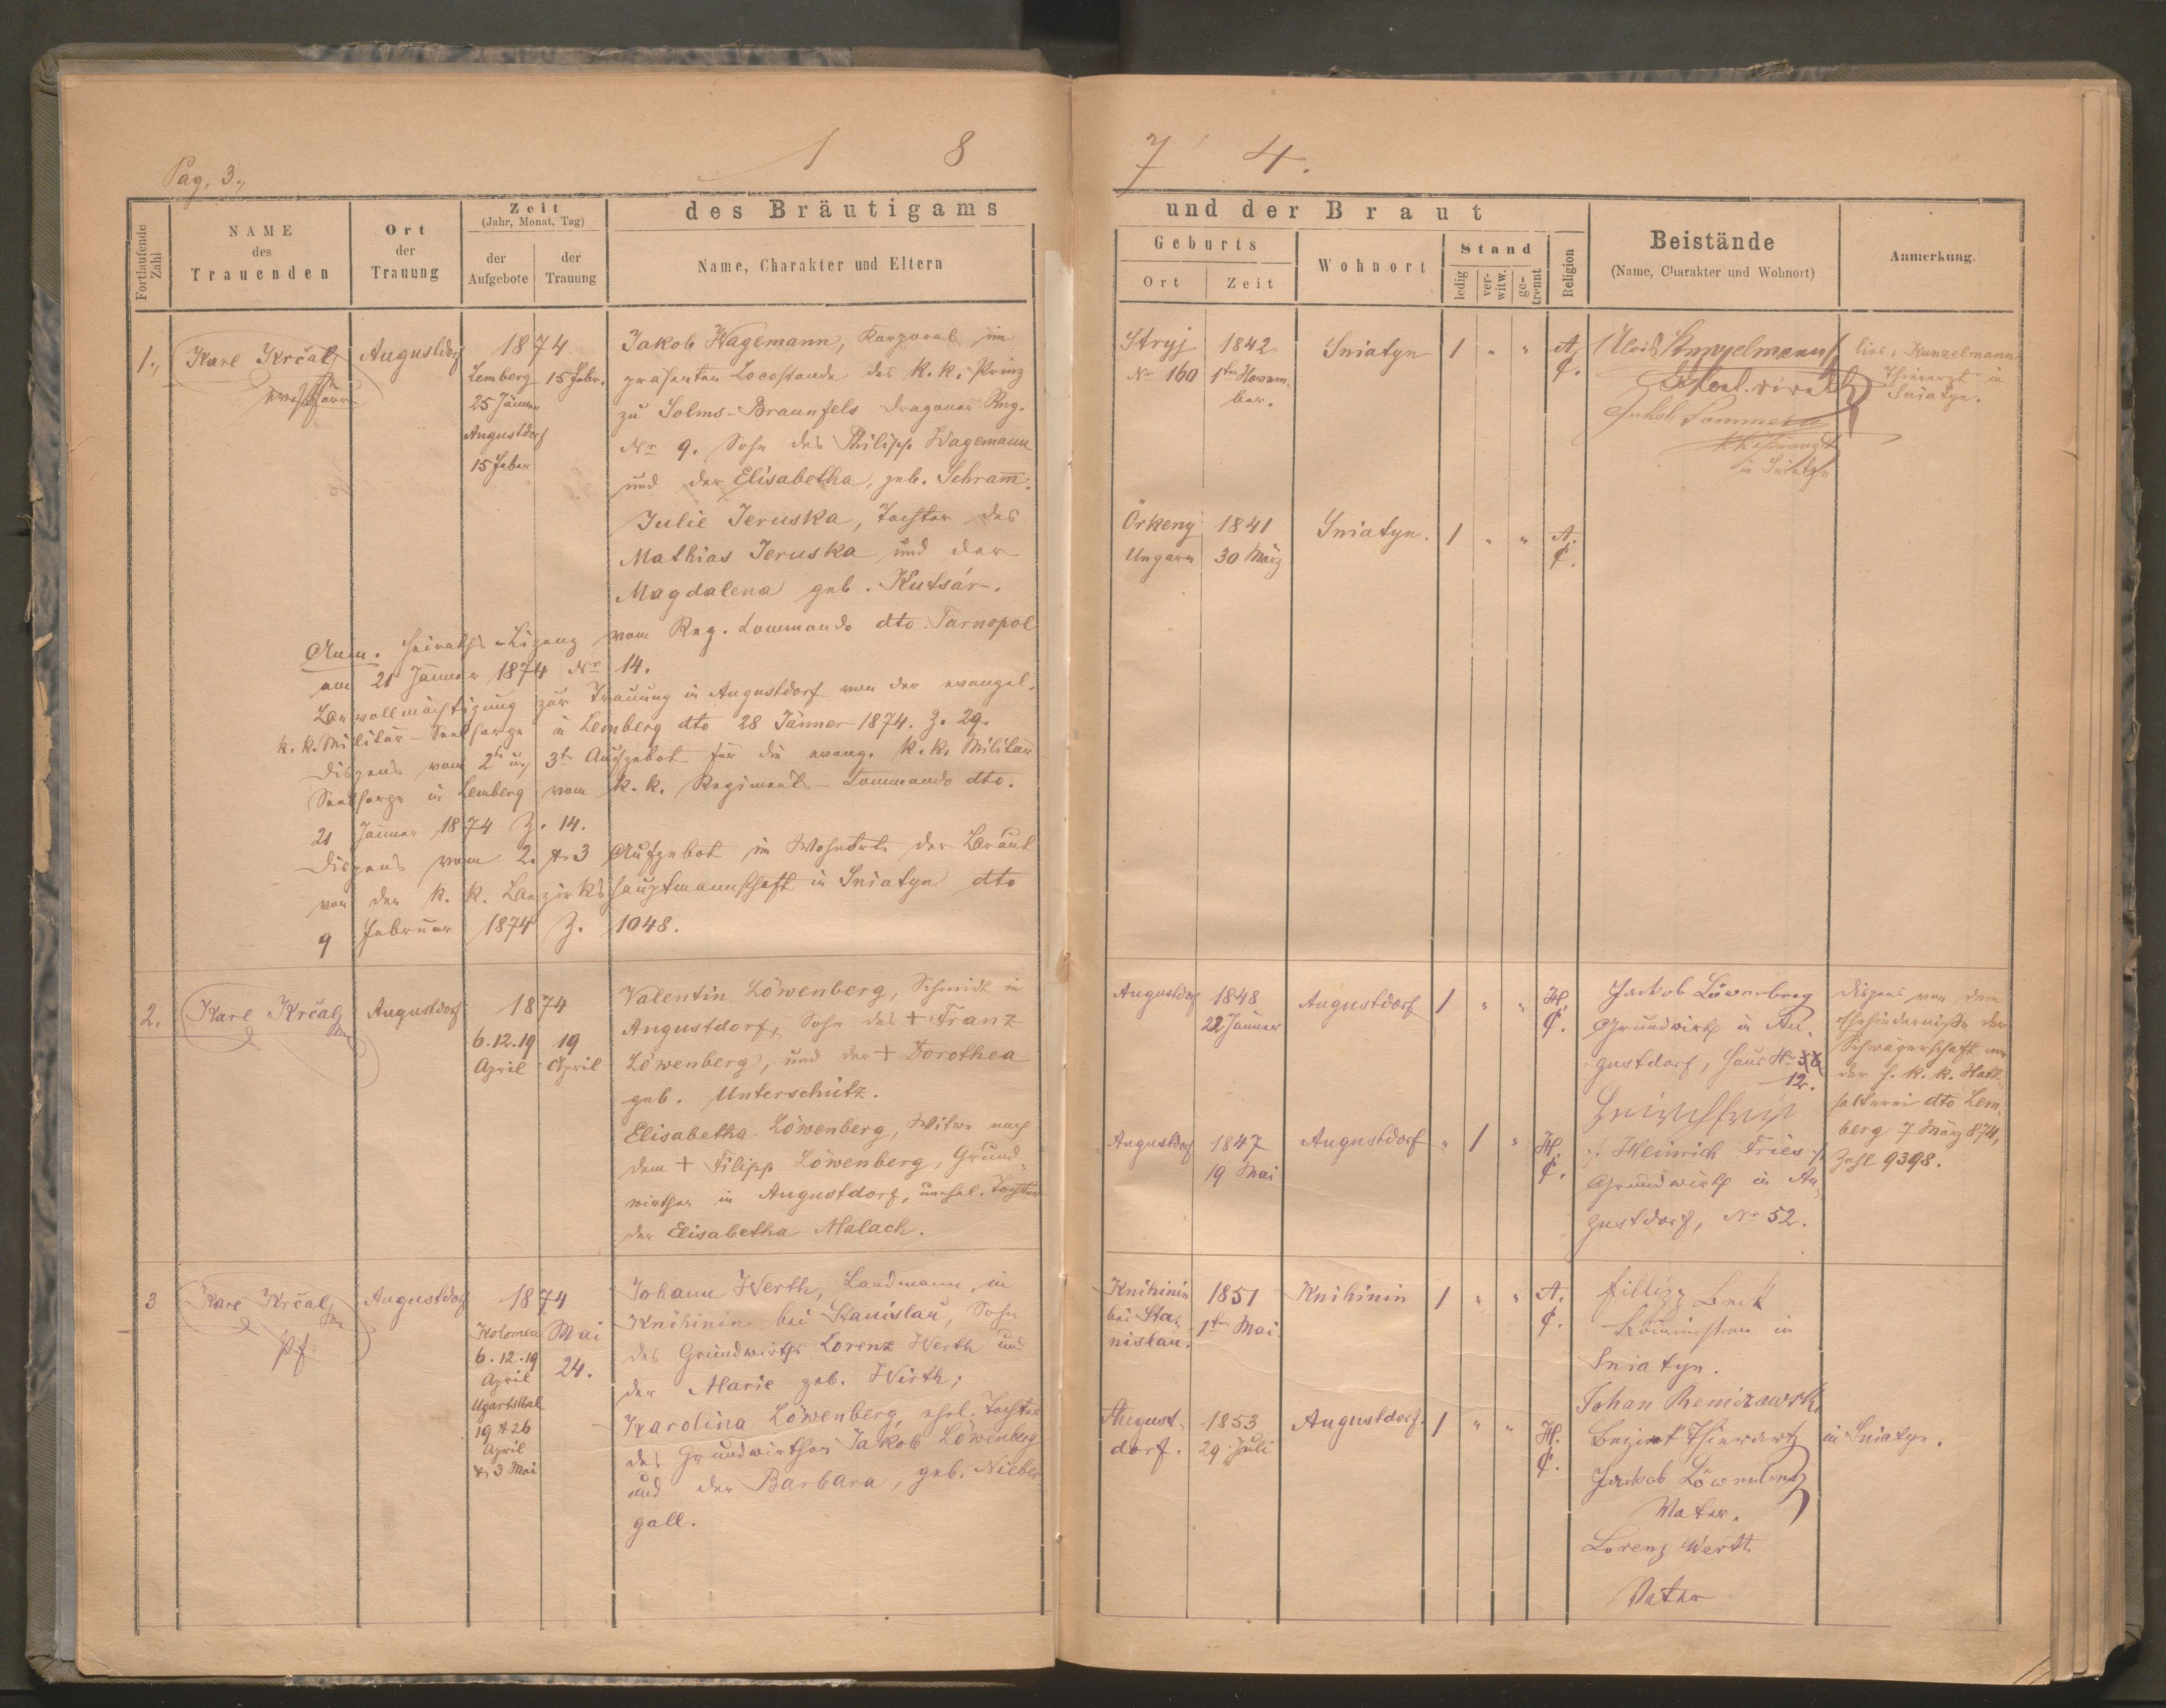 Pag. 3.,
1 8 7 4.
Fortlaufende Zahl
NAME des Trauenden
Ort der Trauung
Zeit (Jahr, Monat, Tag)
der Aufgebote
der Trauung
des Bräutigams
Name, Charakter und Eltern
und der Braut
Geburts
Ort
Zeit
Wohnort
Stand
ledig
ver-witw.
ge-trennt
Religion
Beistände
(Name, Charakter und Wohnort)
Anmerkung.
1.,
Karl Krčal
Augustdorf
1874
Lemberg
25 Jänner
Augustdorf
15 Feber
15 Febr.
Jakob Wagemann, Korporal im
präsenten Locostande des k. k. Prinz
zu Solms-Braunfels Dragoner Reg.
Nr 9. Sohn des Philipp Wagemann
und der Elisabetha, geb. Schram̅.
Julie Jeruska, Tochter des
Mathias Jeruska und der
Magdalena geb. Kutsár.
Anm. Heiraths-Lizenz vom Reg. Commando dto Tarnopol
am 21 Jänner 1874 Nr 14.
Bevollmächtigung zur Trauung in Augustdorf von der evangel.
k. k. Militär-Seelsorge in Lemberg dto 28 Jänner 1874. Z. 29.
Dispens vom 2t u. 3t Aufgebot für die evang. k. k. Militär
Seelsorge in Lemberg vom k. k. Regiments-Commando dto.
21 Jänner 1874 Z. 14.
Dispens vom 2. & 3 Aufgebot im Wohnorte der Braut
von der k. k. Bezirkshauptmannschaft in Sniatyn dto
9 Februar 1874 Z. 1048.
Stryj
Nr 160
1842
1ten Novem-
ber.
Sniatyn
1 " "
A.
C.
Jakob Sommer
in Sniatyn
lies: Kunzelmann
Thierarzt in
Sniatyn.
Örkeny
Ungarn
1841
30 März
Sniatyn.
1 " "
A.
C.
2.
Karl Krčal
Augustdorf
1874
6. 12. 19
April
19
April
Valentin Löwenberg, Schmidt in
Augustdorf, Sohn des + Franz
Löwenberg, und der + Dorothea
geb. Unterschütz.
Elisabetha Löwenberg, Witwe nach
dem + Filipp Löwenberg, Grund-
wirthen in Augustdorf, unehel. Tochter
der Elisabetha Malach.
Augustdorf
1848
22 Jänner
Augustdorf
1 " "
H.
C.
Jackob Löwenberg
Grundwirth in Au-
gustdorf, Haus N.
12.
./. Heinrich Fries ./.
Grundwirth in Au-
gustdorf, Nr 52.
Dispens von dem
Ehehindernisse der
Schwägerschaft von
der h. k. k. Statt-
halterei dto Lem-
berg 7 März 874,
Zahl 9398.
Augustdorf
1847
19 Mai
Augustdorf
" 1 "
H.
C.
3
Karl Krčal,
Pf.
Augustdorf
1874
Kolomea
6. 12. 19
April
Ugartsthal
19 & 26
April
& 3 Mai
Mai
24.
Johann Werth, Landmann, in
Knihinin bei Stanislau, Sohn
des Grundwirths Lorenz Werth und
der Marie geb. Wirth;
Karolina Löwenberg, ehel. Tochter
des Grundwirthen Jakob Löwenberg
und der Barbara, geb. Nieber-
gall.
Knihinin
bei Sta-
nislau.
1851
1ten Mai
Knihinin
1 " "
A.
C.
in
Sniatyn.
Johan Remizowski
Bezirks Thierarzt in Sniatyn.
Jackob Löwenberg
Vater.
Lorenz Werth
Vater
August-
dorf.
1853
29. Juli
Augustdorf.
1 " "
H.
C.